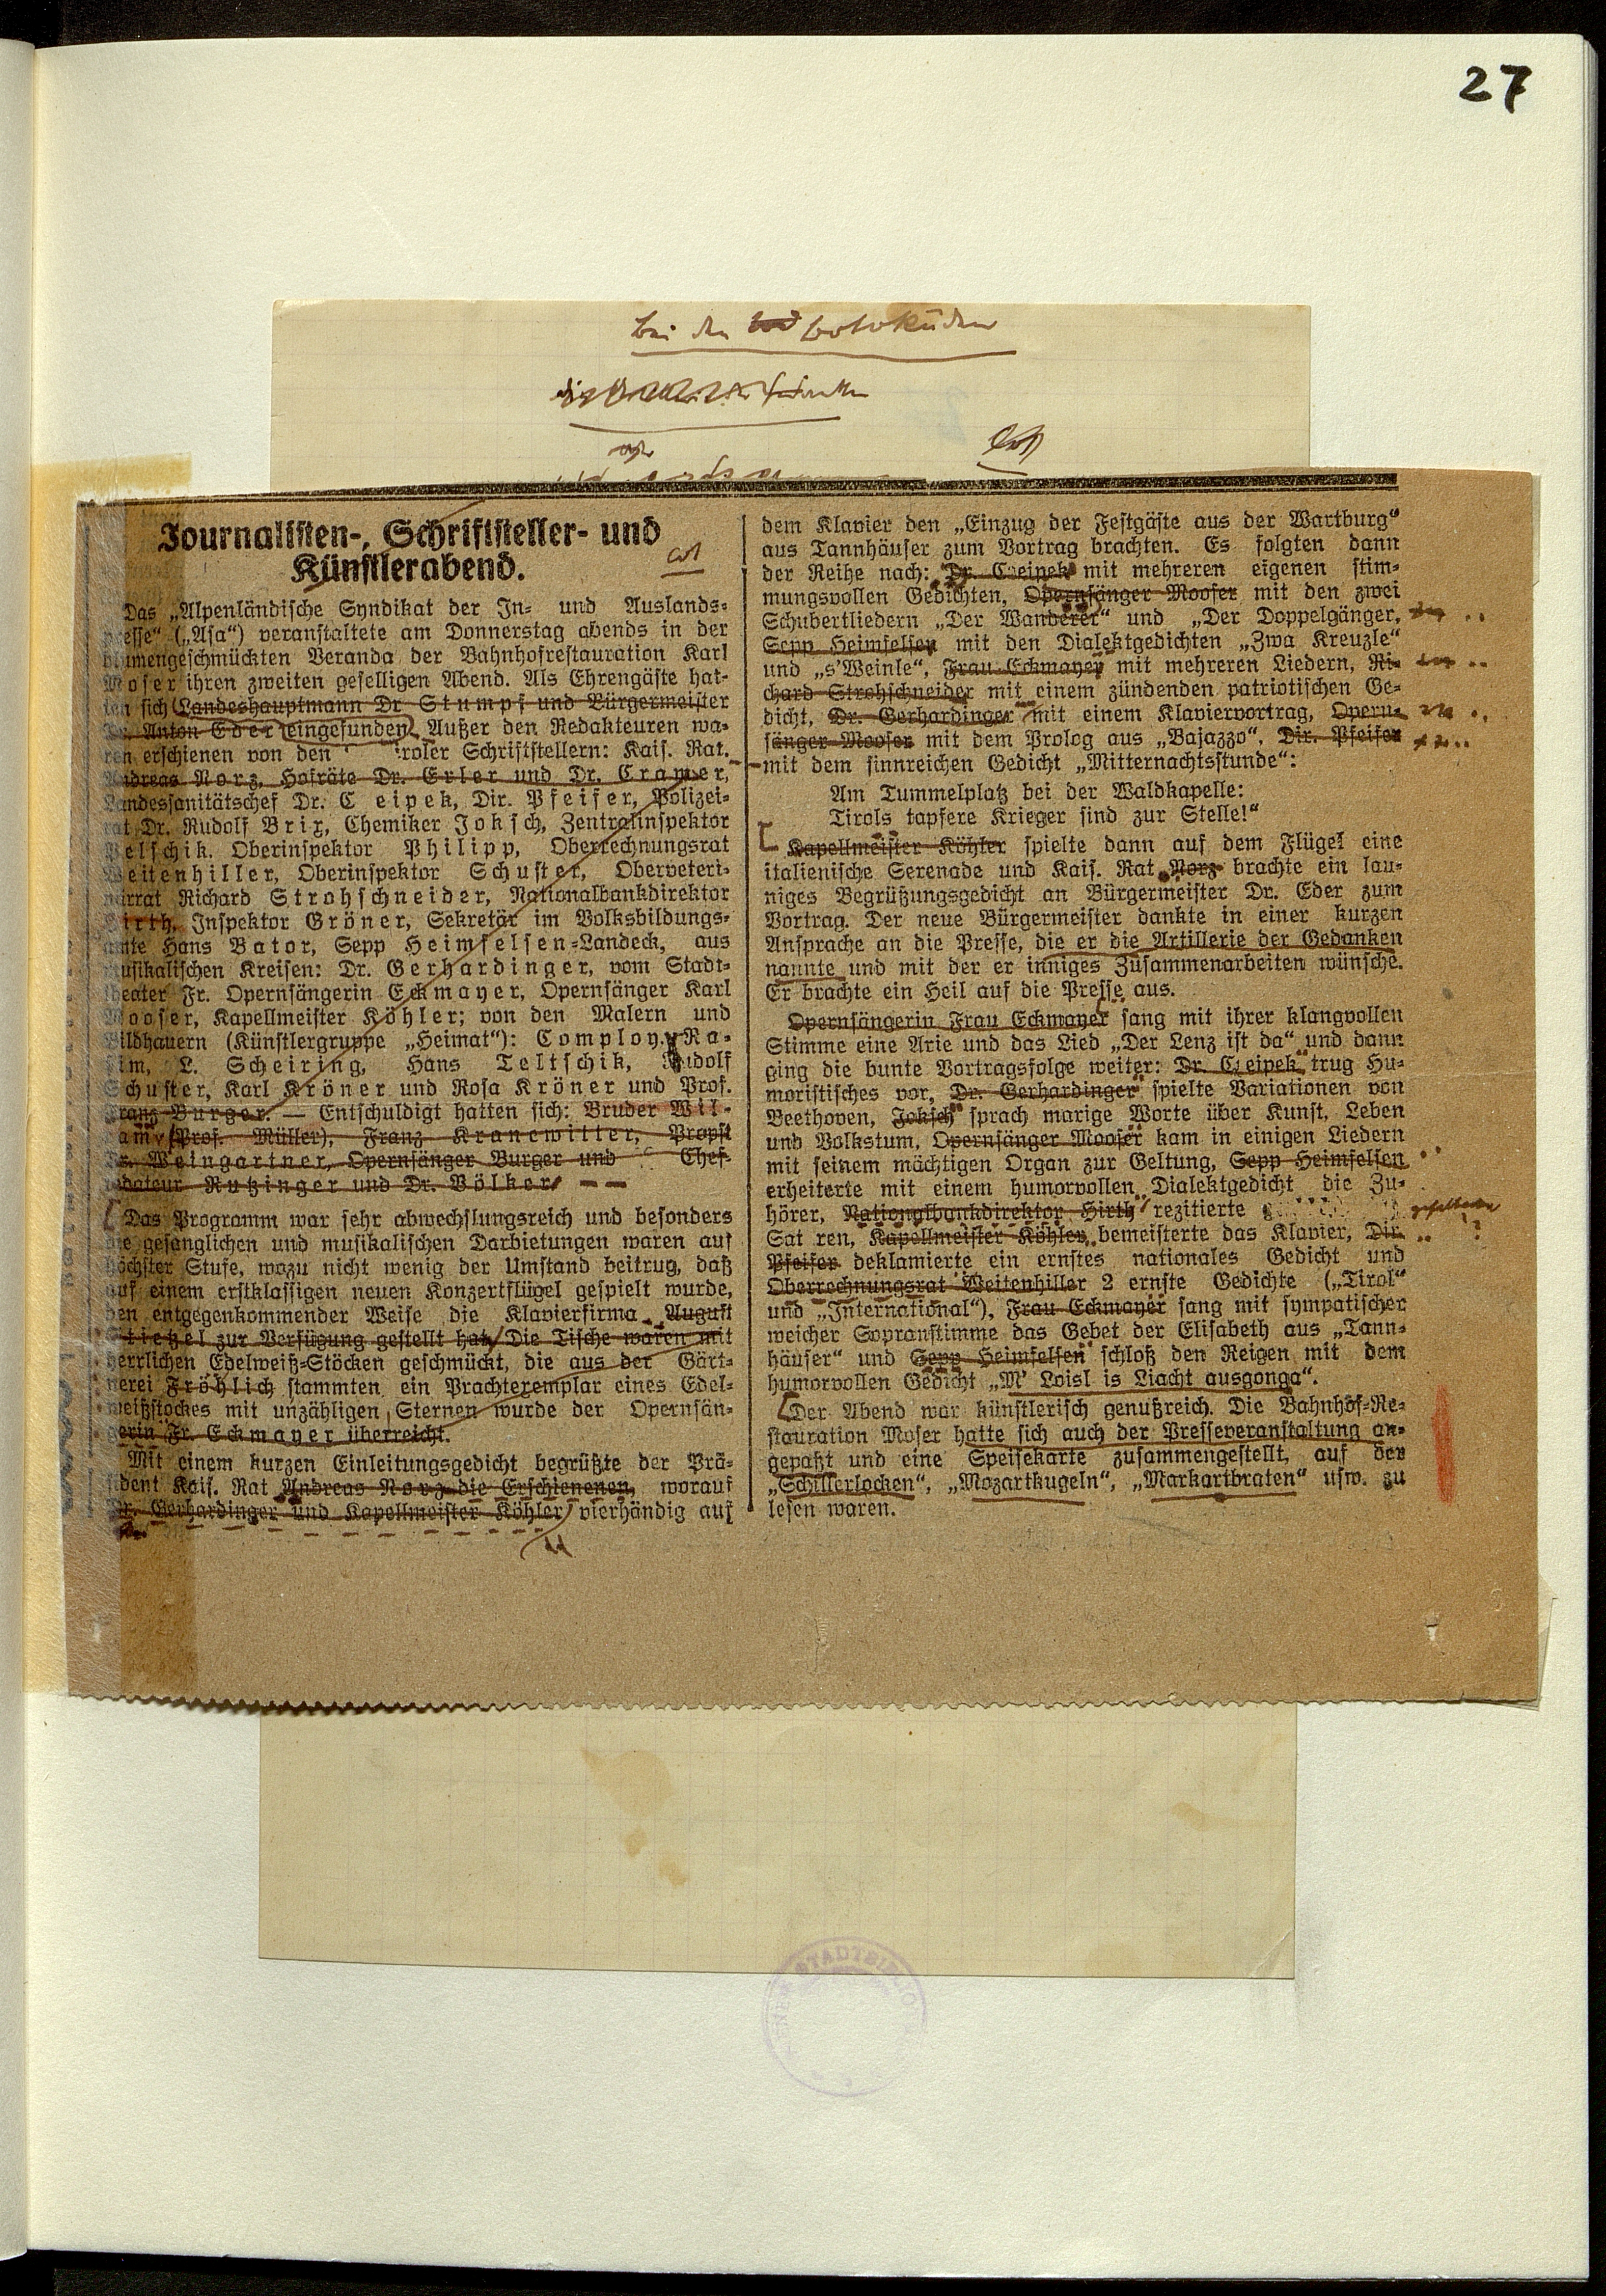 27
Bei den Botokuden
Journalisten-, Schriftsteller- und
Künstlerabend.
Das „Alpenländische Syndikat der In- und Auslands-
esse“ („Asa“) veranstaltete am Donnerstag abends in der
umengeschmückten Veranda der Bahnhofrestauration Karl
Moser ihren zweiten geselligen Abend. Als Ehrengäste hat-
ten sich Landeshauptmann Dr Stumpf und Bürgermeister
Anton Eder eingefunden. Außer den Redakteuren wa-
ren erschienen von den roler Schriftstellern: Kais. Rat.
Andreas Norz, Hofräte Dr. Erler und Dr. Cramer,
andessanitätschef Dr. C eipek, Dir. Pfeifer, Polizei-
rat Dr. Rudolf Brix, Chemiker Joksch, Zentralinspektor
elschik. Oberinspektor Philipp, Oberrechnungsrat
Weitenhiller, Oberinspektor Schuster, Oberveteri-
ärrat Richard Strohschneider, Nationalbankdirektor
irth, Inspektor Gröner, Sekretär im Volksbildungs-
amte Hans Bator, Sepp Heimfelsen-Landeck, aus
usikalischen Kreisen: Dr. Gerhardinger, vom Stadt-
eater Fr. Opernsängerin Eckmayer, Opernsänger Karl
Mooser, Kapellmeister Köhler; von den Malern und
ildhauern (Künstlergruppe „Heimat“): Comploy, Ra-
im, L. Scheiring, Hans Teltschik, Rudolf
Schuster, Karl Kröner und Rosa Kröner und Prof.
Franz Burger. — Entschuldigt hatten sich: Bruder Wil-
am (Prof. Müller), Franz Kranewitter, Propst
Weingartner, Opernsänger Burger und Chef-
dateur Rutzinger und Dr. Völker.
Das Programm war sehr abwechslungsreich und besonders
e gesanglichen und musikalischen Darbietungen waren auf
höchster Stufe, wozu nicht wenig der Umstand beitrug, daß
auf einem erstklassigen neuen Konzertflügel gespielt wurde,
en entgegenkommender Weise die Klavierfirma August
tietzel zur Verfügung gestellt hat. Die Tische waren mit
herrlichen Edelweiß-Stöcken geschmückt, die aus der Gärt-
nerei Fröhlich stammten ein Prachtexemplar eines Edel-
weißstockes mit unzähligen Sternen wurde der Opernsän-
gerin Fr. Eckmayer überreicht.
Mit einem kurzen Einleitungsgedicht begrüßte der Prä-
sident Kais. Rat Andreas Norz die Erschienenen, worauf
Dr. Gerhardinger und Kapellmeister Köhler vierhändig auf
dem Klavier den „Einzug der Festgäste aus der Wartburg“
aus Tannhäuser zum Vortrag brachten. Es folgten dann
der Reihe nach: Dr. Czeipek mit mehreren eigenen stim-
mungsvollen Gedichten, Opernsänger Mooser mit den zwei
Schubertliedern „Der Wanderer“ und „Der Doppelgänger,
Sepp Heimfelsen mit den Dialektgedichten „Zwa Kreuzle“
und „s'Weinle“, Frau Eckmayer mit mehreren Liedern, Ri-
chard Strohschneider mit einem zündenden patriotischen Ge-
dicht, Dr. Gerhardinger mit einem Klaviervortrag, Opern-
sänger Mooser mit dem Prolog aus „Bajazzo“, Dir. Pfeifer
mit dem sinnreichen Gedicht „Mitternachtsstunde“:
Am Tummelplatz bei der Waldkapelle:
Tirols tapfere Krieger sind zur Stelle!“
Kapellmeister Köhler spielte dann auf dem Flügel eine
italienische Serenade und Kais. Rat Norz brachte ein lau-
niges Begrüßungsgedicht an Bürgermeister Dr. Eder zum
Vortrag. Der neue Bürgermeister dankte in einer kurzen
Ansprache an die Presse, die er die Artillerie der Gedanken
nannte und mit der er inniges Zusammenarbeiten wünsche.
Er brachte ein Heil auf die Presse aus.
Opernsängerin Frau Eckmayer sang mit ihrer klangvollen
Stimme eine Arie und das Lied „Der Lenz ist da“ und dann
ging die bunte Vortragsfolge weiter: Dr. Czeipek trug Hu-
moristisches vor, Dr. Gerhardinger spielte Variationen von
Beethoven, Joksch sprach markige Worte über Kunst, Leben
und Volkstum, Opernsänger Mooser kam in einigen Liedern
mit seinem mächtigen Organ zur Geltung, Sepp Heimfelsen
erheiterte mit einem humorvollen Dialektgedicht die Zu-
hörer, Nationalbankdirektor Hirth rezitierte
Sat ren, Kapellmeister Köhler bemeisterte das Klavier, Dir.
Pfeifer deklamierte ein ernstes nationales Gedicht und
Oberrechnungsrat Weitenhiller 2 ernste Gedichte („Tirol“
und „International“), Frau Eckmayer sang mit sympatischer
weicher Sopranstimme das Gebet der Elisabeth aus „Tann-
häuser“ und Sepp Heimfelsen schloß den Reigen mit dem
humorvollen Gedicht „M' Loisl is Liacht ausgonga“.
Der Abend war künstlerisch genußreich. Die Bahnhof-Re-
stauration Moser hatte sich auch der Presseveranstaltung an-
gepaßt und eine Speisekarte zusammengestellt, auf der
„Schillerlocken“, „Mozartkugeln“, „Markartbraten“ usw. zu
lesen waren.